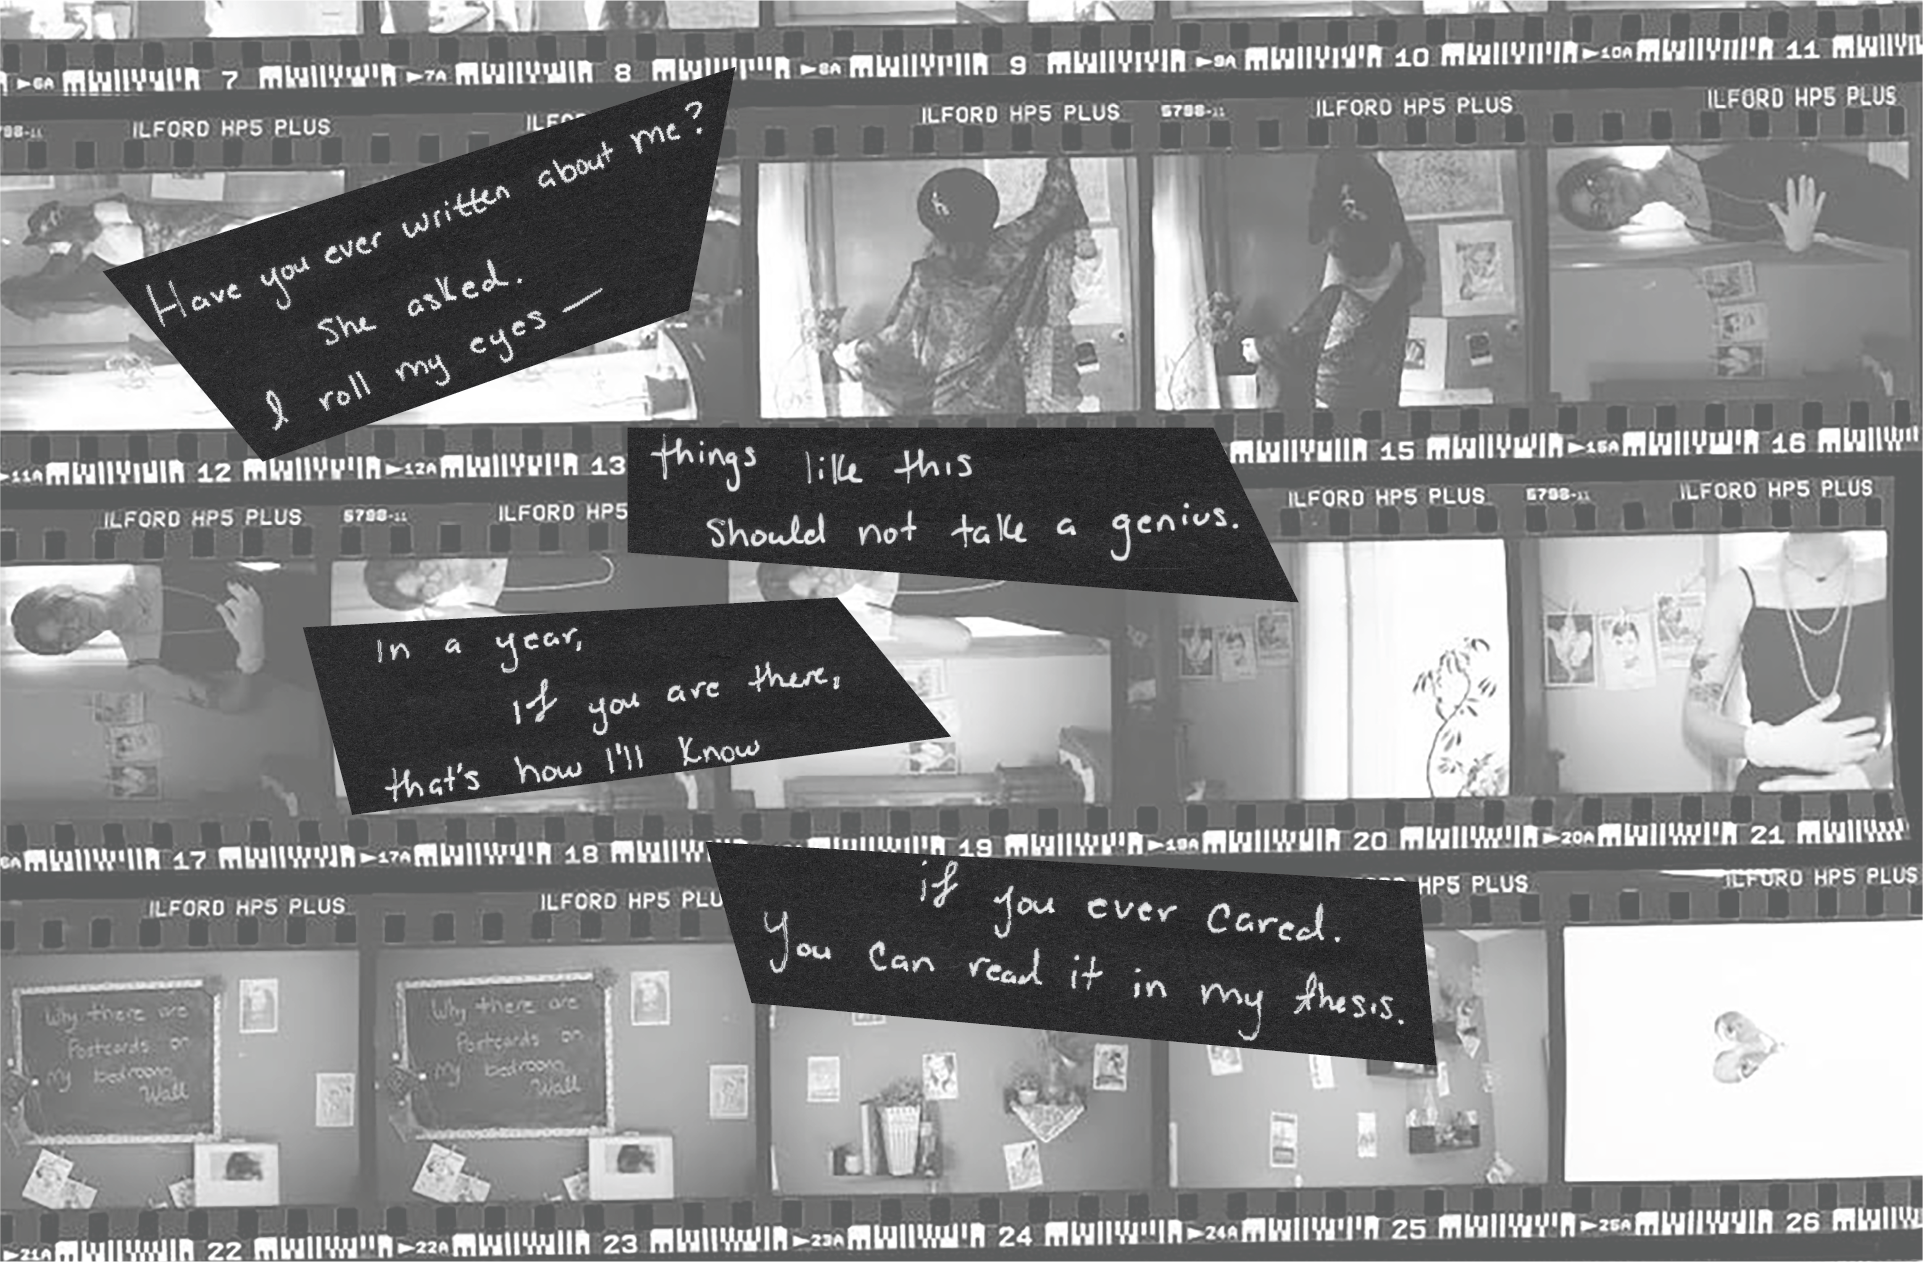 6A 7 7A 8 8A 9 9A 10 10A 11
5798-11 ILFORD HP5 PLUS ILFORD HP5 PLUS 5798-11 ILFORD HP5 PLUS ILFORD HP5 PLUS
Have you ever written about me?
She asked.
I roll my eyes —
11A 12 12A 13 15 15A 16
things like this
should not take a genius.
ILFORD HP5 PLUS 5798-11 ILFORD HP5 ILFORD HP5 PLUS 5798-11 ILFORD HP5 PLUS
In a year,
If you are there,
that's how I'll know
17 17A 18 19 19A 20 20A 21
if you ever cared.
You can read it in my thesis.
ILFORD HP5 PLUS ILFORD HP5 PLU HP5 PLUS ILFORD HP5 PLUS
Why there are
Postcards on
My bedroom
Wall
Why there are
Postcards on
My bedroom
Wall
21A 22 22A 23 23A 24 24A 25 25A 26